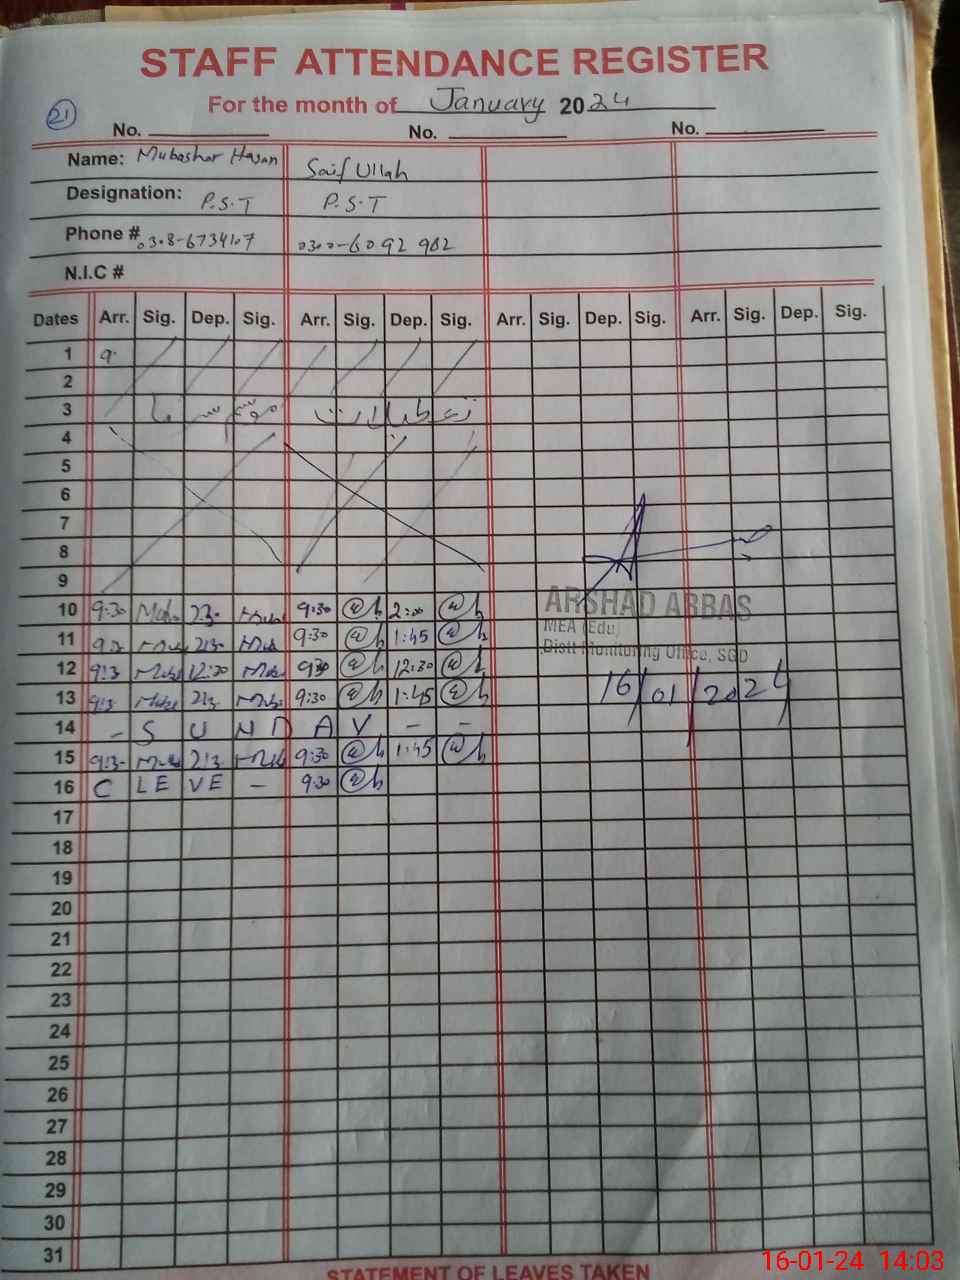 STAFF ATTENDANCE REGISTER
For the month of January 2024
21
No. No. No.
Name: Mubashar Hasan Saif Ullah
Designation: P.S.T P.S.T
Phone # 0308-6734107 0300-6092 982
N.I.C #
Dates Arr. Sig. Dep. Sig. Arr. Sig. Dep. Sig. Arr. Sig. Dep. Sig. Arr. Sig. Dep. Sig.
1 9
2
3 موسم سرما تعطیلات
4
5
6
7
8
9
10 9:30 2:30 9:30 2:00
11 9:30 2:30 9:30 1:45
12 9:3 12:30 930 12:30
13 9:3 2:3 9:30 1:45
14 - S U N D A Y - -
15 9:3- 2:3 9:30 1:45
16 C LE VE - 9:30
17
18
19
20
21
22
23
24
25
26
27
28
29
30
31
ARSHAD ABBAS
MEA (Edu)
Distt Monitoring Office, SGD
16/01/2024
STATEMENT OF LEAVES TAKEN
16-01-24 14:03